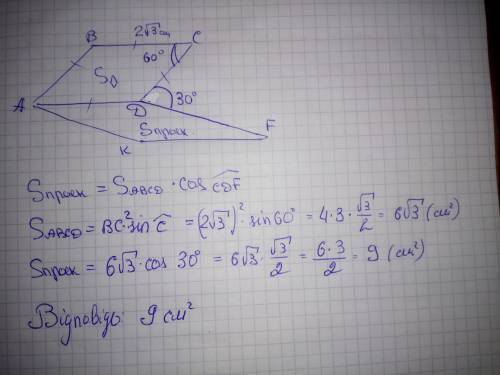 B 2√3 см C
60°
S₀
A D 30°
Sпроек F
K
Sпроек = S_ABCD · cos CDF
S_ABCD = BC² · sin C = (2√3)² · sin 60° = 4 · 3 · √3/2 = 6√3 (см²)
Sпроек = 6√3 · cos 30° = 6√3 · √3/2 = 6·3/2 = 9 (см²)
Відповідь: 9 см²